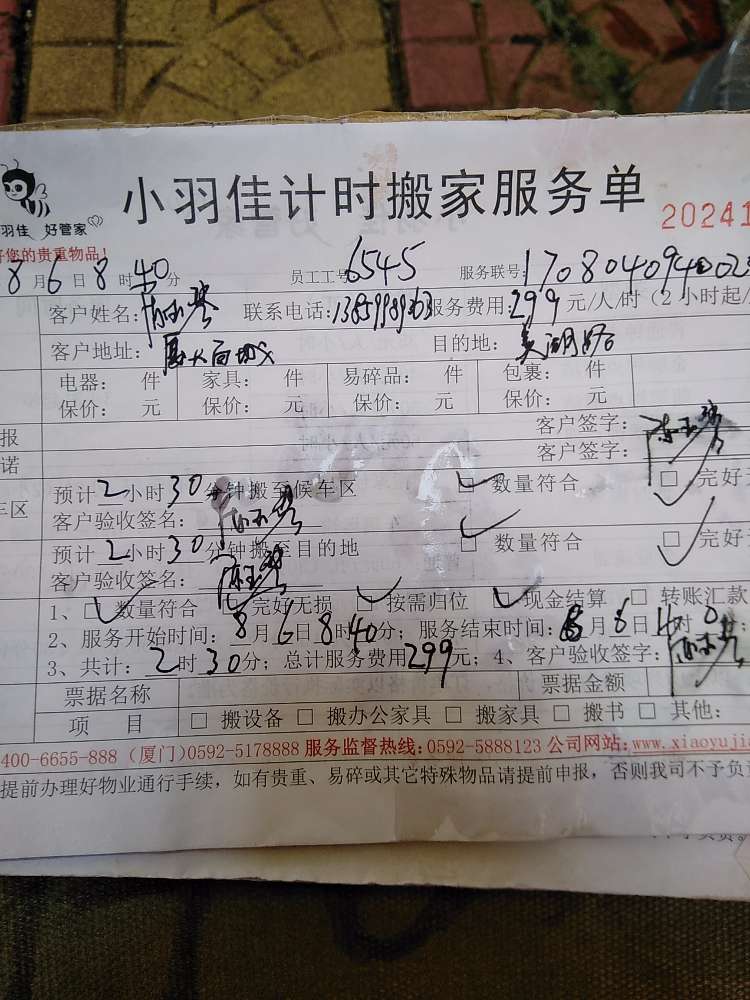 小羽佳计时搬家服务单
羽佳 好管家
20241
好您的贵重物品！
8月6日8时40分 员工工号6545 服务联号:170804094002
客户姓名: 联系电话: 服务费用:299元/人/时（2小时起/
客户地址: 目的地:
电器: 件 家具: 件 易碎品: 件 包裹: 件
保价: 元 保价: 元 保价: 元 保价: 元
报 客户签字:
诺 客户签字:
预计2小时30分钟搬至候车区 □ 数量符合 □ 完好
车区 客户验收签名:
预计2小时30分钟搬至目的地 □ 数量符合 □ 完好
客户验收签名:
1、□ 数量符合 □ 完好无损 □ 按需归位 □ 现金结算 □ 转账汇款
2、服务开始时间: 8月6日8时40分；服务结束时间: 8月6日11时
3、共计: 2时30分；总计服务费用299元；4、客户验收签字:
票据名称 票据金额
项 目 □ 搬设备 □ 搬办公家具 □ 搬家具 □ 搬书 □ 其他:
400-6655-888 (厦门)0592-5178888 服务监督热线:0592-5888123 公司网站:www.xiaoyujia
提前办理好物业通行手续，如有贵重、易碎或其它特殊物品请提前申报，否则我司不予负